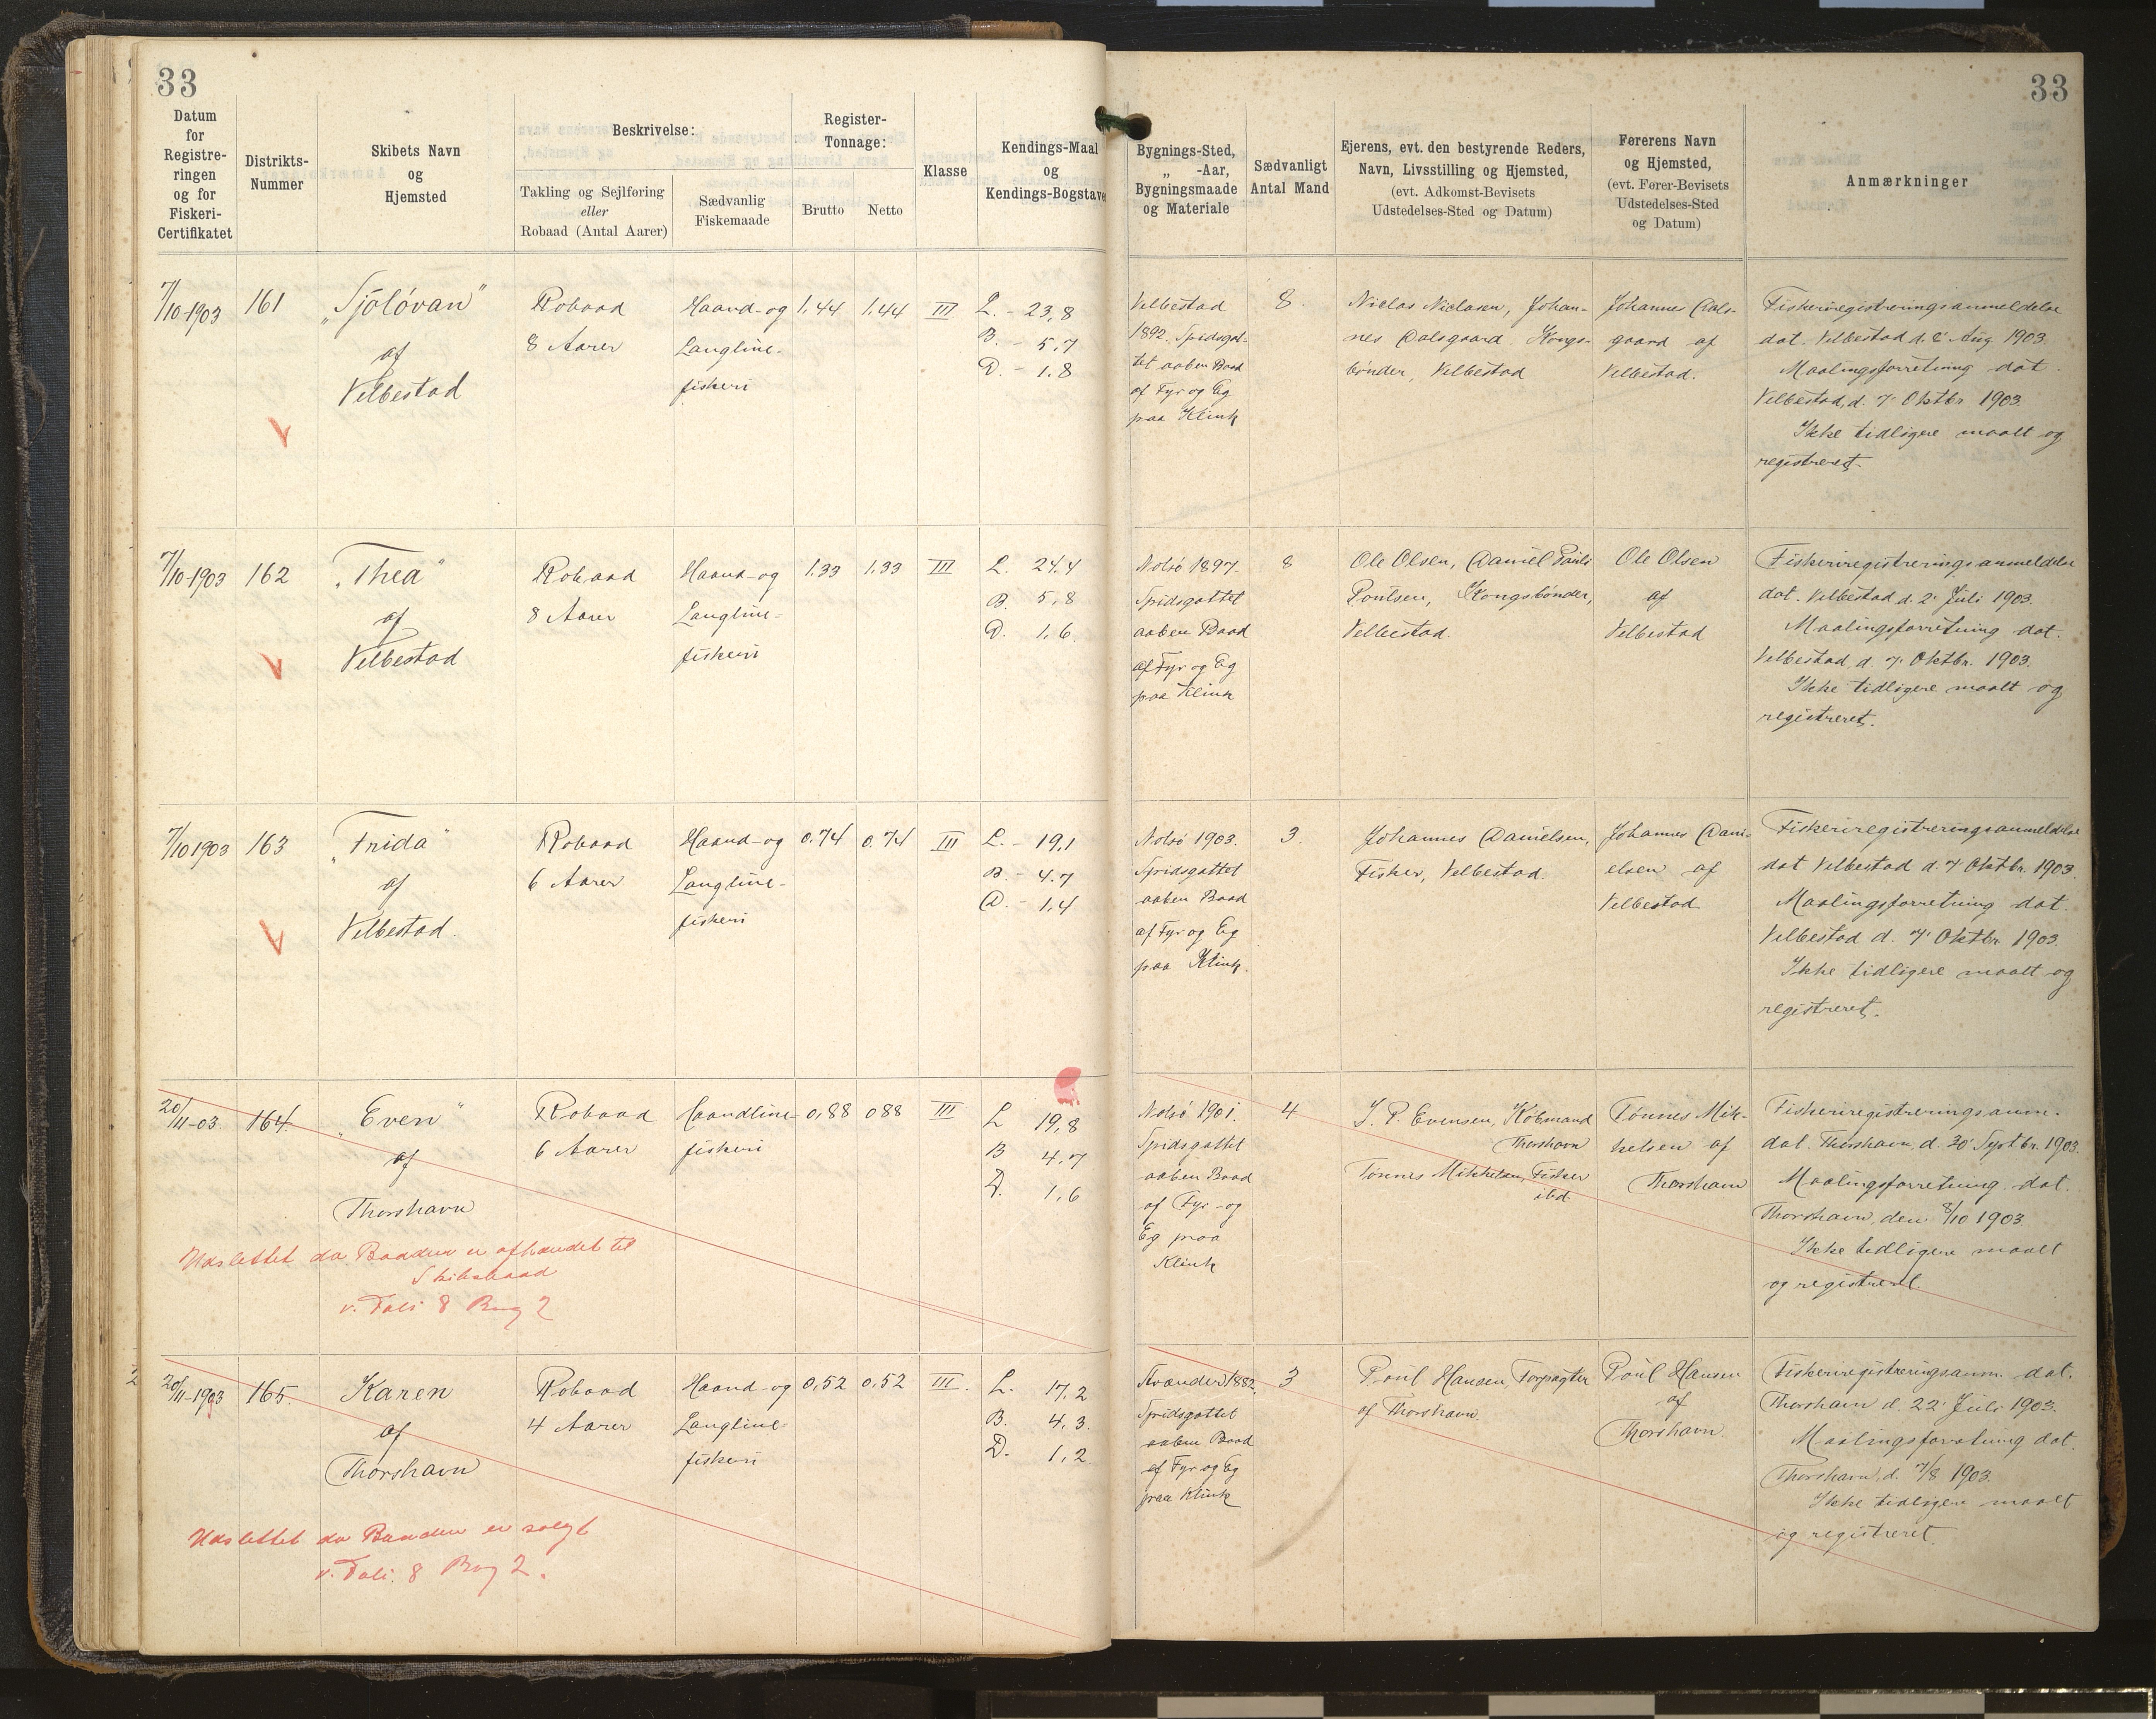 33
33
Datum
for
Registre-
ringen
og for
Fiskeri-
Certifikatet
Distrikts-
Nummer
Skibets Navn
og
Hjemsted
Beskrivelse:
Takling og Sejlføring
eller
Robaad (Antal Aarer)
Sædvanlig
Fiskemaade
Register-
Tonnage:
Brutto
Netto
Klasse
Kendings-Maal
og
Kendings-Bogstaver
Bygnings-Sted,
„ -Aar,
Bygningsmaade
og Materiale
Sædvanligt
Antal Mand
Ejerens, evt. den bestyrende Reders,
Navn, Livsstilling og Hjemsted,
(evt. Adkomst-Bevisets
Udstedelses-Sted og Datum)
Førerens Navn
og Hjemsted,
(evt. Fører-Bevisets
Udstedelses-Sted
og Datum)
Anmærkninger
7/10-1903
161
„Sjólóvan"
af
Velbestad
Robaad
8 Aarer
Haand- og
Langline-
fiskeri
1,44
1,44
III
L. - 23,8
B. - 5,7
D. - 1.8
Velbestad
1892. Spidsgat-
tet aaben Baad
af Fyr og Eg
paa Klink
8.
Niclas Niclasen, Johan-
nes Dalsgaard Kongs-
bønder, Velbestad
Johannes Dals-
gaard af
Velbestad.
Fiskeriregistreringsanmeldelse
dat. Velbestad d. 8' Aug 1903.
Maalingsforretning dat.
Velbestad, d. 7' Oktbr. 1903.
Ikke tidligere maalt og
registreret.
7/10-1903
162
„Thea"
af
Velbestad
Robaad
8 Aarer
Haand- og
Langline-
fiskeri
1.33
1.33
III
L. 24,4
B. 5,8
D. 1,6
Nolsö 1897.
Spidsgattet
aaben Baad
af Fyr og Eg
paa Klink
8
Ole Olsen, Daniel Pauli
Poulsen, Kongsbönder,
Velbestad.
Ole Olsen
af
Velbestad
Fiskeriregistreringsanmeldelse
dat. Velbestad d. 2' Juli 1903.
Maalingsforretning dat.
Velbestad d. 7' Oktbr. 1903.
Ikke tidligere maalt og
registreret.
7/10 1903
163
„Frida"
af
Velbestad.
Robaad
6 Aarer
Haand- og
Langline-
fiskeri
0.74
0.74
III
L. - 19,1
B. - 4.7
D. - 1,4
Nolsö 1903.
Spidsgattet
aaben Baad
af Fyr og Eg
paa Klink.
3.
Johannes Danielsen,
Fisker, Velbestad.
Johannes Dani-
elsen af
Velbestad.
Fiskeriregistreringsanmeldelse
dat Velbestad d. 7' Oktbr. 1903.
Maalingsforretning dat.
Velbestad d. 7' Oktbr. 1903.
Ikke tidligere maalt og
registreret.
20/11-03.
164.
„Even"
af
Thorshavn
Robaad
6 Aarer
Haandline-
fiskeri
0,88
0 88
III
L 19,8
B 4,7
D. 1,6
Nolsö 1901.
Spidsgattet
aaben Baad
af Fyr- og
Eg paa
Klink
4
J. P. Evensen, Købmand
Thorshavn
Tönnes Mikkelsen, Fisker
ibd.
Tönnes Mik-
kelsen af
Thorshavn
Fiskeriregistreringsanm.
dat. Thorshavn, d. 30' Septbr. 1903.
Maalingsforretning dat.
Thorshavn, den 8/10 1903
Ikke tidligere maalt
og registreret.
Udslettet da Baaden er afhændet til
Skibsbaad
v. Foli 8 Bog 2
20/11-1903
165.
Karen
af
Thorshavn
Robaad
4 Aarer
Haand- og
Langline-
fiskeri
0,52
0,52
III.
L. 17,2
B. 4,3.
D. 1,2.
Strænder 1882.
Spidsgattet
aaben Baad
af Fyr og Eg
paa Klink
3
Poul Hansen, Forpagter
af Thorshavn.
Poul Hansen
af
Thorshavn.
Fiskeriregistreringsanm. dat.
Thorshavn d. 22' Juli 1903.
Maalingsforretning dat.
Thorshavn, d. 7/8 1903.
Ikke tidligere maalt
og registreret.
Udslettet da Baaden er solgt
v. Foli. 8 Bog 2.